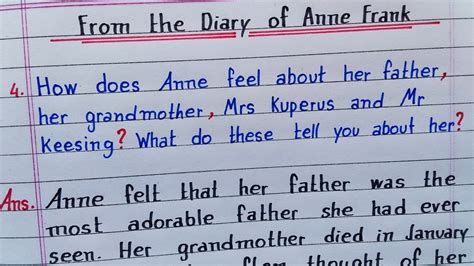 From the Diary of Anne Frank
4. How does Anne feel about her father,
her grandmother, Mrs Kuperus and Mr
Keesing? What do these tell you about her?
Ans. Anne felt that her father was the
most adorable father she had ever
seen. Her grandmother died in January
thought of her